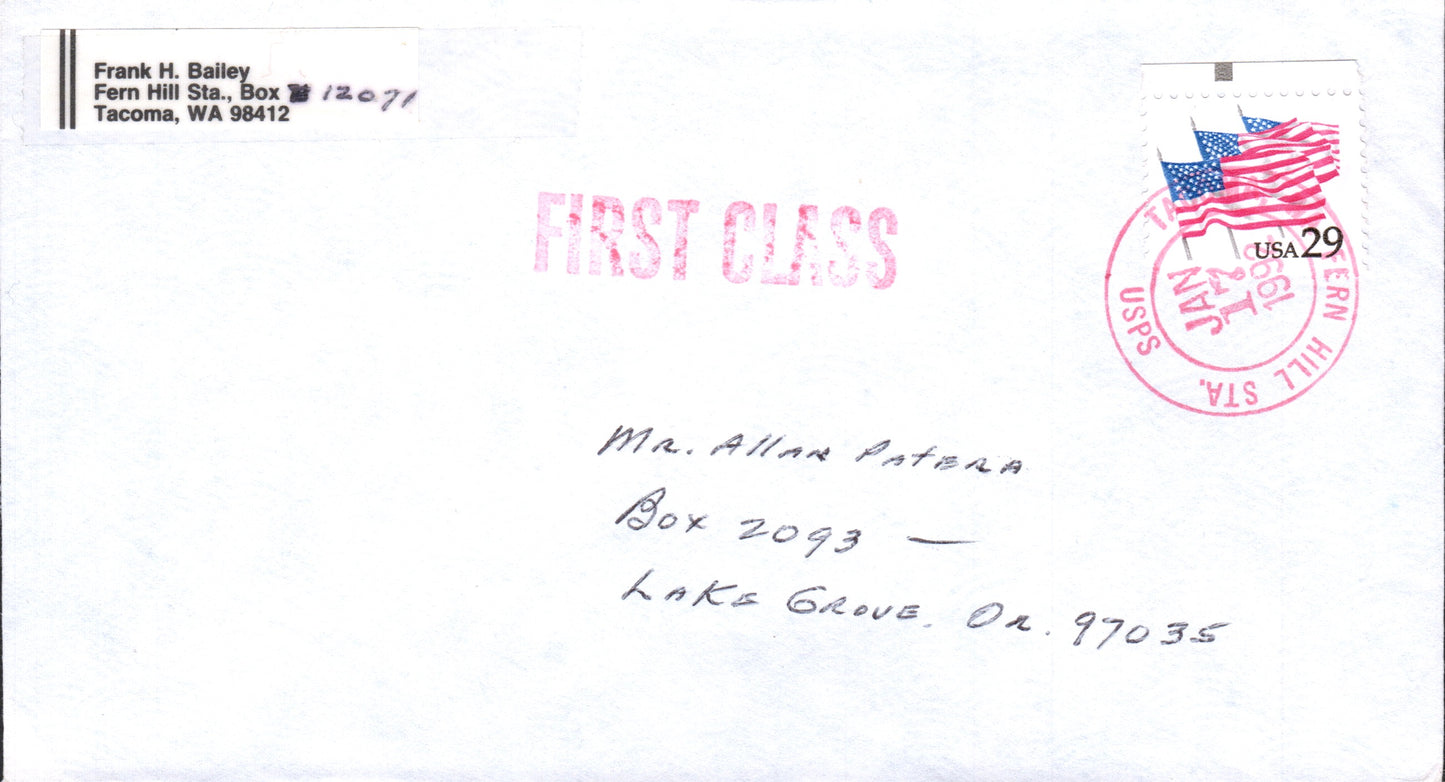 Frank H. Bailey
Fern Hill Sta., Box 12071
Tacoma, WA 98412
FIRST CLASS
USA 29
FERN HILL STA.
USPS
JAN
Mr. Allan Patera
Box 2093 —
Lake Grove, Or. 97035